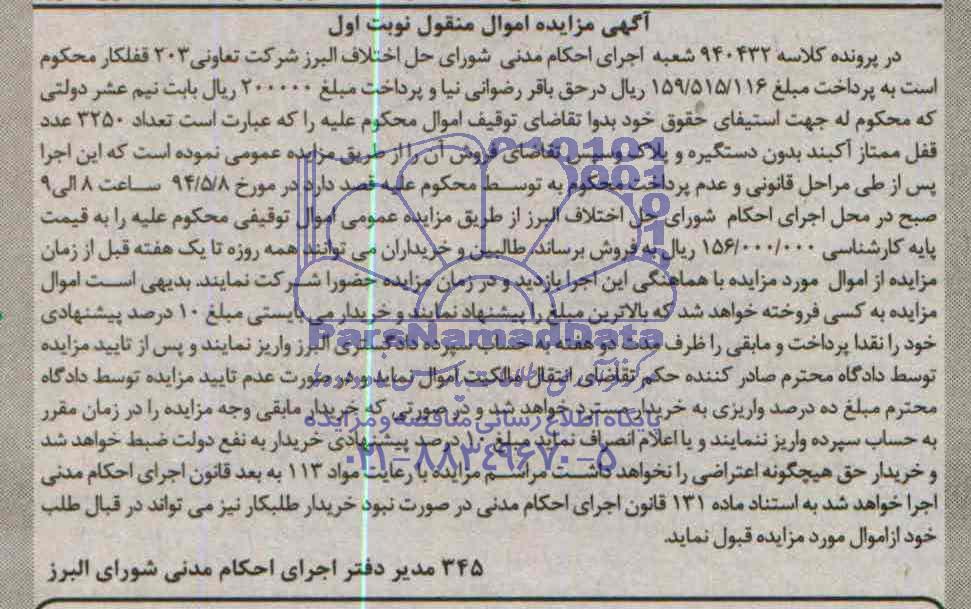 آگهی مزایده اموال منقول نوبت اول
در پرونده کلاسه ۹۴۰۴۳۲ شعبه اجرای احکام مدنی شورای حل اختلاف البرز شرکت تعاونی۲۰۳ قفلکار محکوم
است به پرداخت مبلغ ۱۵۹/۵۱۵/۱۱۶ ریال درحق باقر رضوانی نیا و پرداخت مبلغ ۲۰۰۰۰۰ ریال بابت نیم عشر دولتی
که محکوم له جهت استیفای حقوق خود بدوا تقاضای توقیف اموال محکوم علیه را که عبارت است تعداد ۳۲۵۰ عدد
قفل ممتاز آکبند بدون دستگیره و پلاک وسپس تقاضای فروش آن را از طریق مزایده عمومی نموده است که این اجرا
پس از طی مراحل قانونی و عدم پرداخت محکوم به توسط محکوم علیه قصد دارد در مورخ ۹۴/۵/۸ ساعت ۸ الی۹
صبح در محل اجرای احکام شورای حل اختلاف البرز از طریق مزایده عمومی اموال توقیفی محکوم علیه را به قیمت
پایه کارشناسی ۱۵۶/۰۰۰/۰۰۰ ریال به فروش برساند. طالبین و خریداران می توانند همه روزه تا یک هفته قبل از زمان
مزایده از اموال مورد مزایده با هماهنگی این اجرا بازدید و در زمان مزایده حضورا شرکت نمایند. بدیهی است اموال
مزایده به کسی فروخته خواهد شد که بالاترین مبلغ را پیشنهاد نمایند و خریدار می بایستی مبلغ ۱۰ درصد پیشنهادی
خود را نقدا پرداخت و مابقی را ظرف مدت دو هفته به حساب سپرده دادگستری البرز واریز نمایند و پس از تایید مزایده
توسط دادگاه محترم صادر کننده حکم تقاضای انتقال مالکیت اموال نماید و در صورت عدم تایید مزایده توسط دادگاه
محترم مبلغ ده درصد واریزی به خریدار مسترد خواهد شد و در صورتی که خریدار مابقی وجه مزایده را در زمان مقرر
به حساب سپرده واریز ننمایند و یا اعلام انصراف نماید مبلغ ۱۰ درصد پیشنهادی خریدار به نفع دولت ضبط خواهد شد
و خریدار حق هیچگونه اعتراضی را نخواهد داشت مراسم مزایده با رعایت مواد ۱۱۳ به بعد قانون اجرای احکام مدنی
اجرا خواهد شد به استناد ماده ۱۳۱ قانون اجرای احکام مدنی در صورت نبود خریدار طلبکار نیز می تواند در قبال طلب
خود ازاموال مورد مزایده قبول نماید.
۳۴۵ مدیر دفتر اجرای احکام مدنی شورای البرز
ParsNamadData
پایگاه اطلاع رسانی مناقصه و مزایده
۰۲۱-۸۸۳۴۹۶۷۰-۵